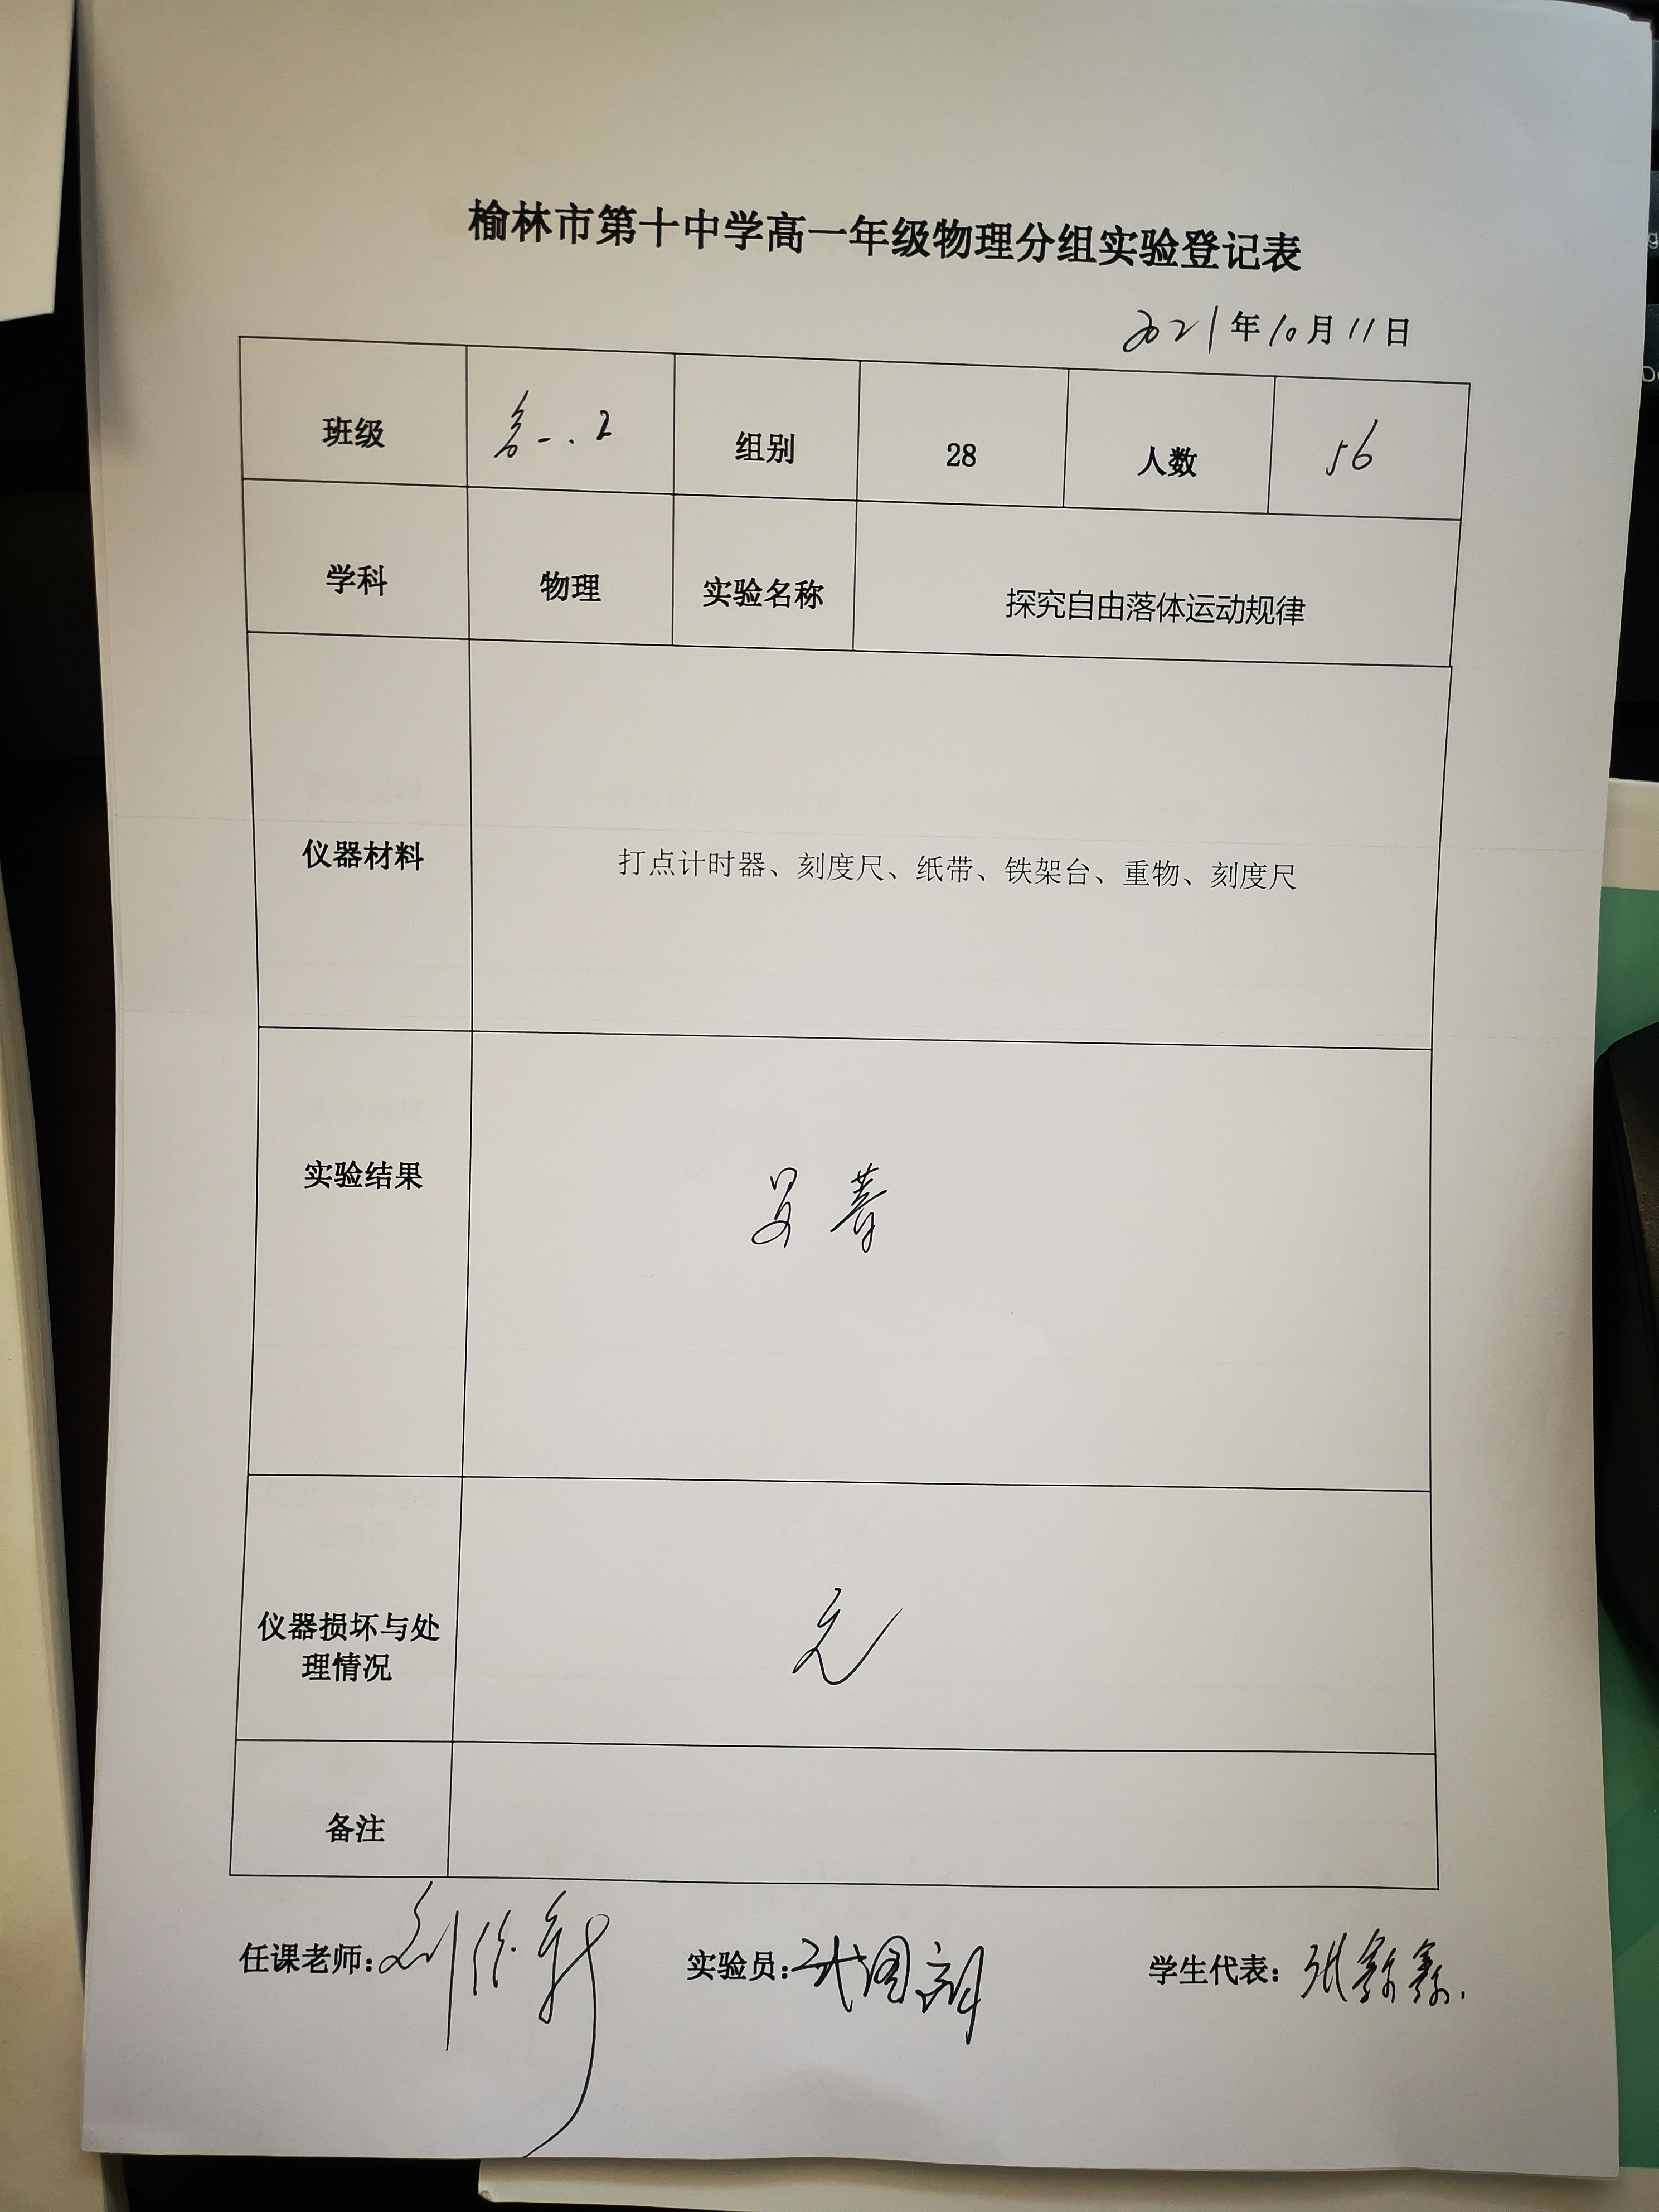 榆林市第十中学高一年级物理分组实验登记表
2021年10月11日
班级 高一.2 组别 28 人数 56
学科 物理 实验名称 探究自由落体运动规律
仪器材料 打点计时器、刻度尺、纸带、铁架台、重物、刻度尺
实验结果 良善
仪器损坏与处
理情况 无
备注
任课老师: 实验员: 学生代表: 张鑫鑫.